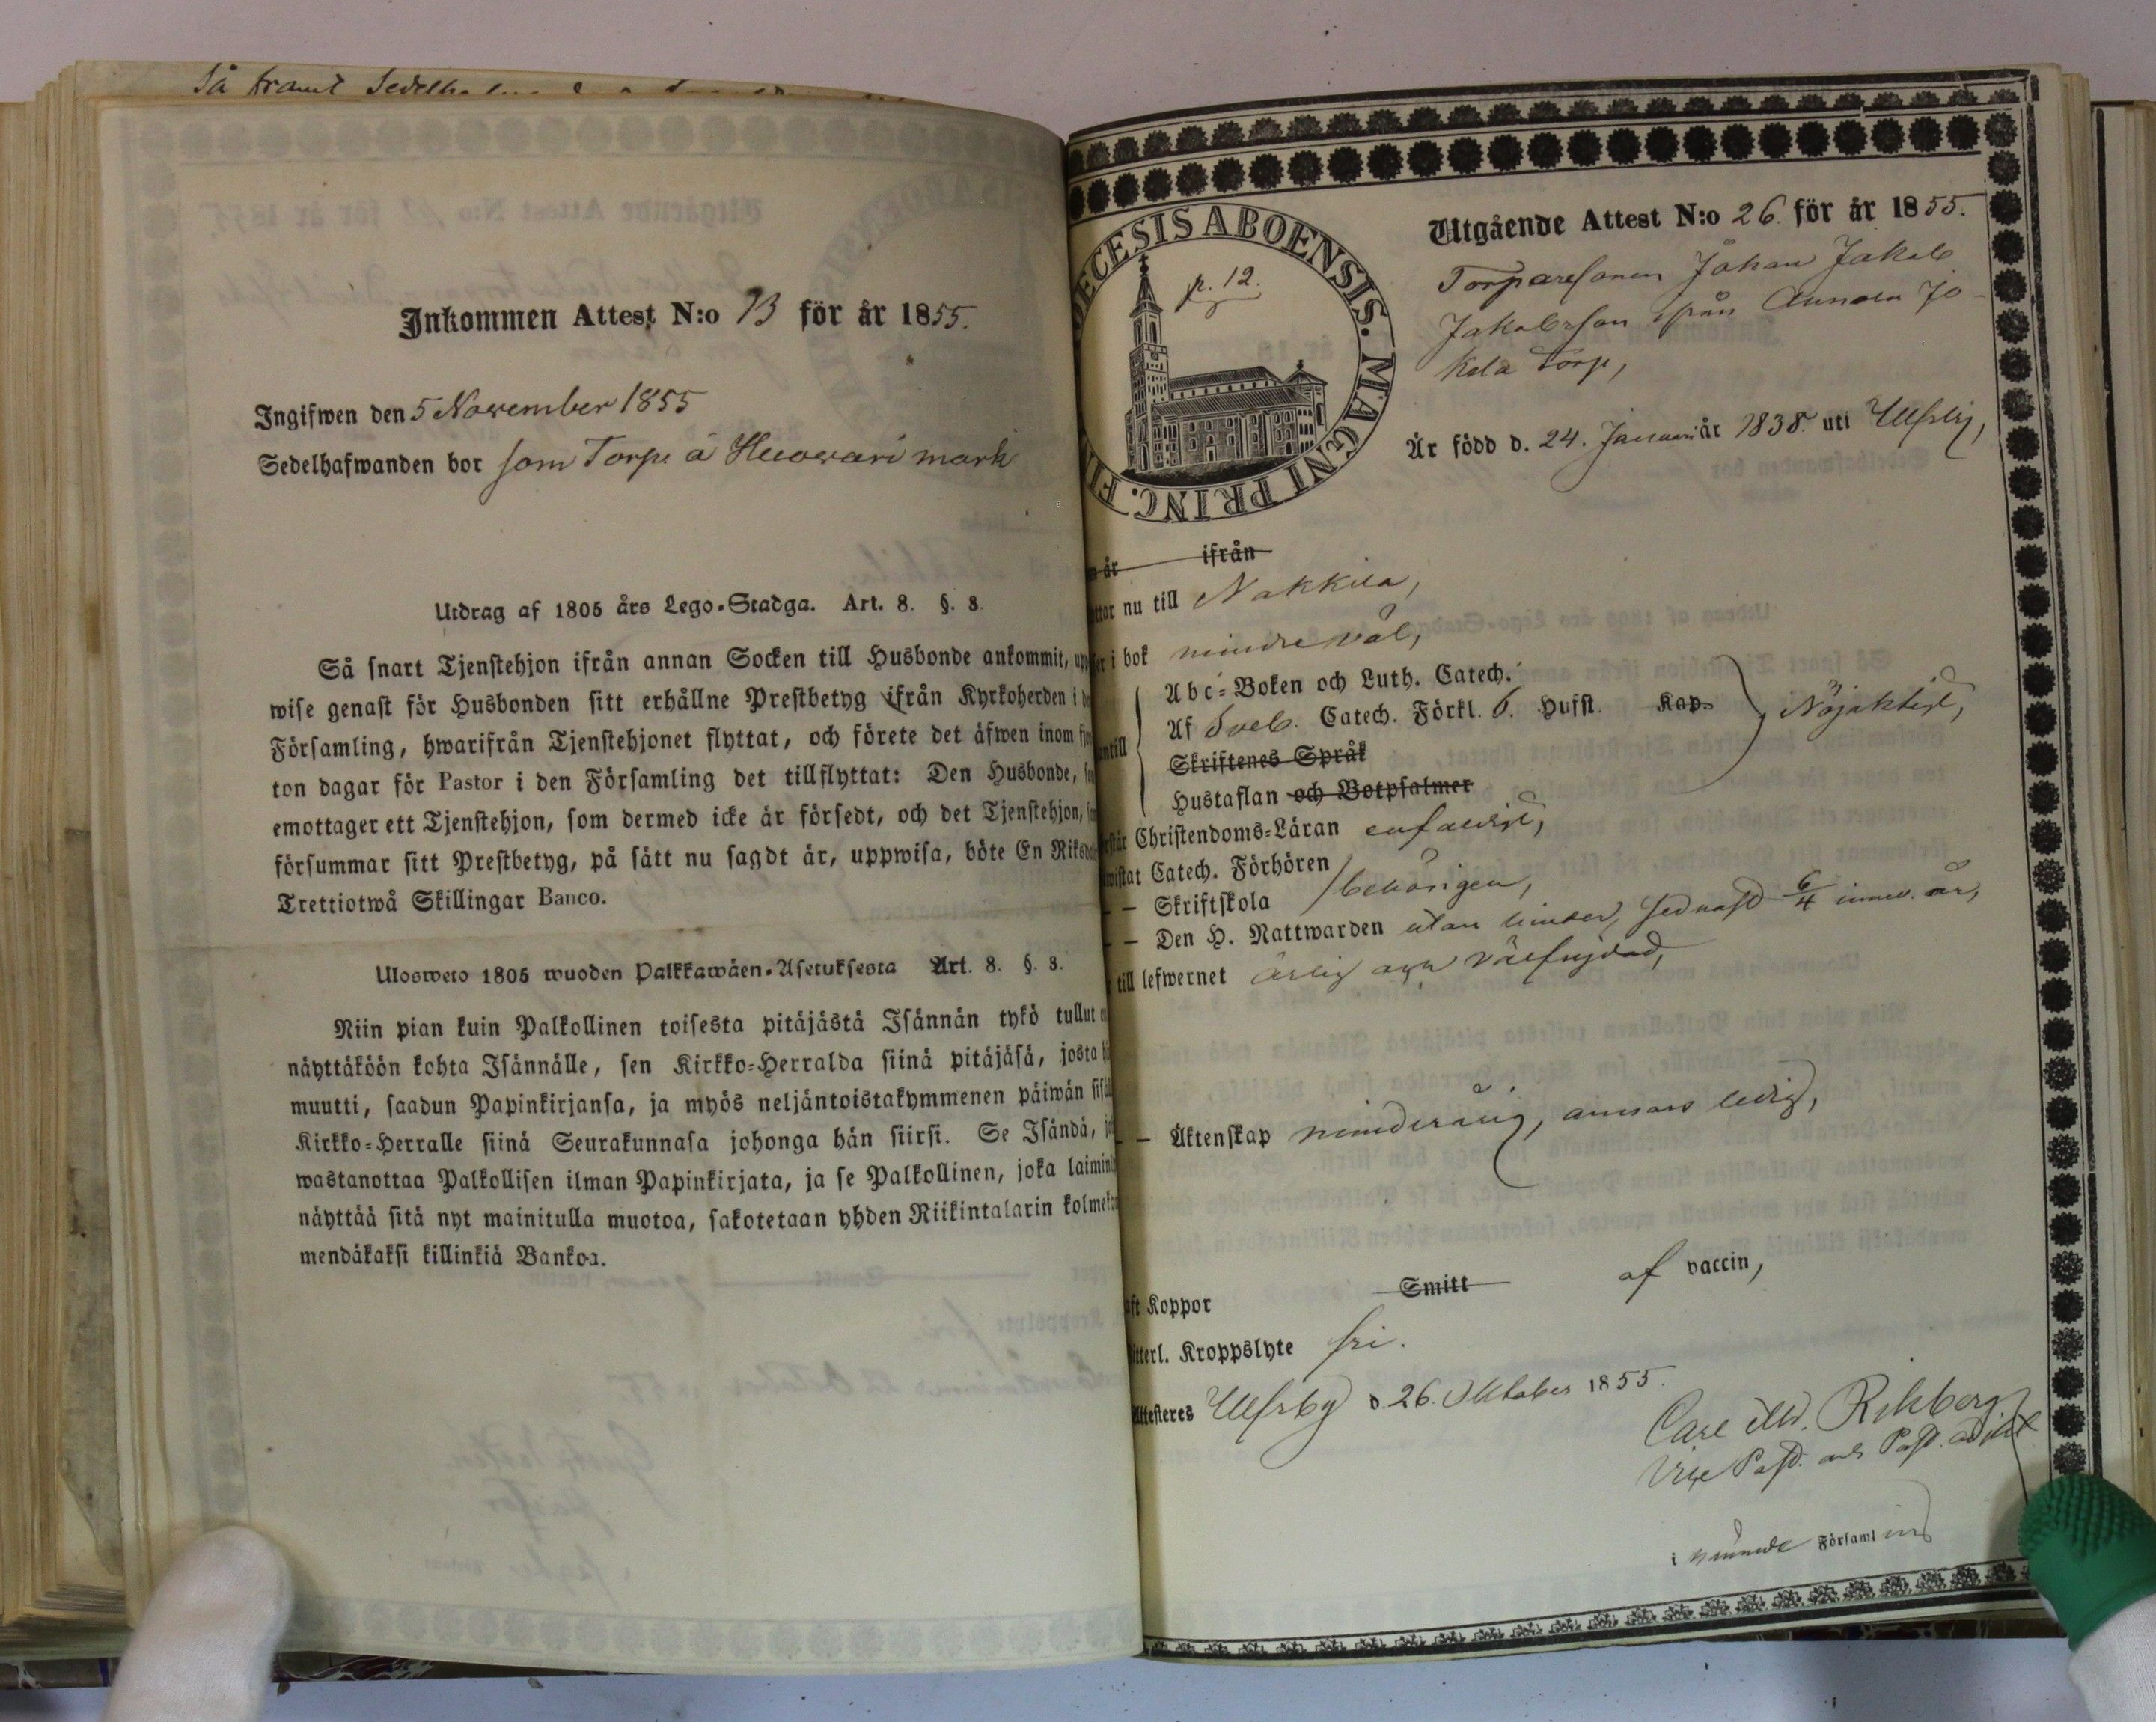 Så framt
Inkommen Attest N:o 13 för år 1855.
Ingifwen den 5 November 1855
Sedelhafwanden bor som Torp. å Huovari mark
Utdrag af 1805 års Lego-Stadga. Art. 8. §. 8.
Så snart Tjenstehjon ifrån annan Socken till Husbonde ankommit, upp
wise genast för Husbonden sitt erhållne Prestbetyg ifrån Kyrkoherden i
Församling, hwarifrån Tjenstehjonet flyttat, och förete det äfwen inom
ton dagar för Pastor i den Församling det tillflyttat: Den Husbonde,
emottager ett Tjenstehjon, som dermed icke är försedt, och det Tjenstehjon,
försummar sitt Prestbetyg, på sätt nu sagdt är, uppwisa, böte En Riksd
Trettiotwå Skillingar Banco.
Ulosweto 1805 wuoden Palkkawäen-Asetuksesta Art. 8. §. 8.
Niin pian kuin Palkollinen toisesta pitäjästä Isännän tykö tullut
näyttäköön kohta Isännälle, sen Kirkko-Herralda siinä pitäjäsä, josta
muutti, saadun Papinkirjansa, ja myös neljäntoistakymmenen päiwän sisä
Kirkko-Herralle siinä Seurakunnasa johonga hän siirsi. Se Isändä,
wastanottaa Palkollisen ilman Papinkirjata, ja se Palkollinen, joka laimin
näyttää sitä nyt mainitulla muotoa, sakotetaan yhden Riikintalarin kolme
mendäkaksi killinkiä Bankoa.
ECESIS ABOENSIS. MAGNI PRINC. FI
p. 12.
Utgående Attest N:o 26. för år 1855.
Torparesonen Johan Jakob
Jakobsson ifrån Annala Jo-
kela Torp,
Är född d. 24. Januari år 1838. uti Ulfsby,
år ifrån
ttar nu till Nakkila,
er i bok mindre väl,
Abc-Boken och Luth. Catech.
Af Sveb. Catech. Förkl. 6. Hufst. Kap. Nöjaktigt,
antill
Skriftenes Språk
Hustaflan och Botpsalmer
står Christendoms-Läran enfaldigt,
wistat Catech. Förhören
— Skriftskola behörigen,
— Den H. Nattwarden utan hinder, sednast 6/4 innev. år,
till lefwernet ärlig och välfrejdad,
— Äktenskap minderårig, annars ledig,
aft Koppor Smitt af vaccin,
itterl. Kroppslyte fri.
Attesteres Ulfsby d. 26. Oktober 1855.
Carl Rikberg
Vice Past. och Past. adjkt
i nämnde Församling